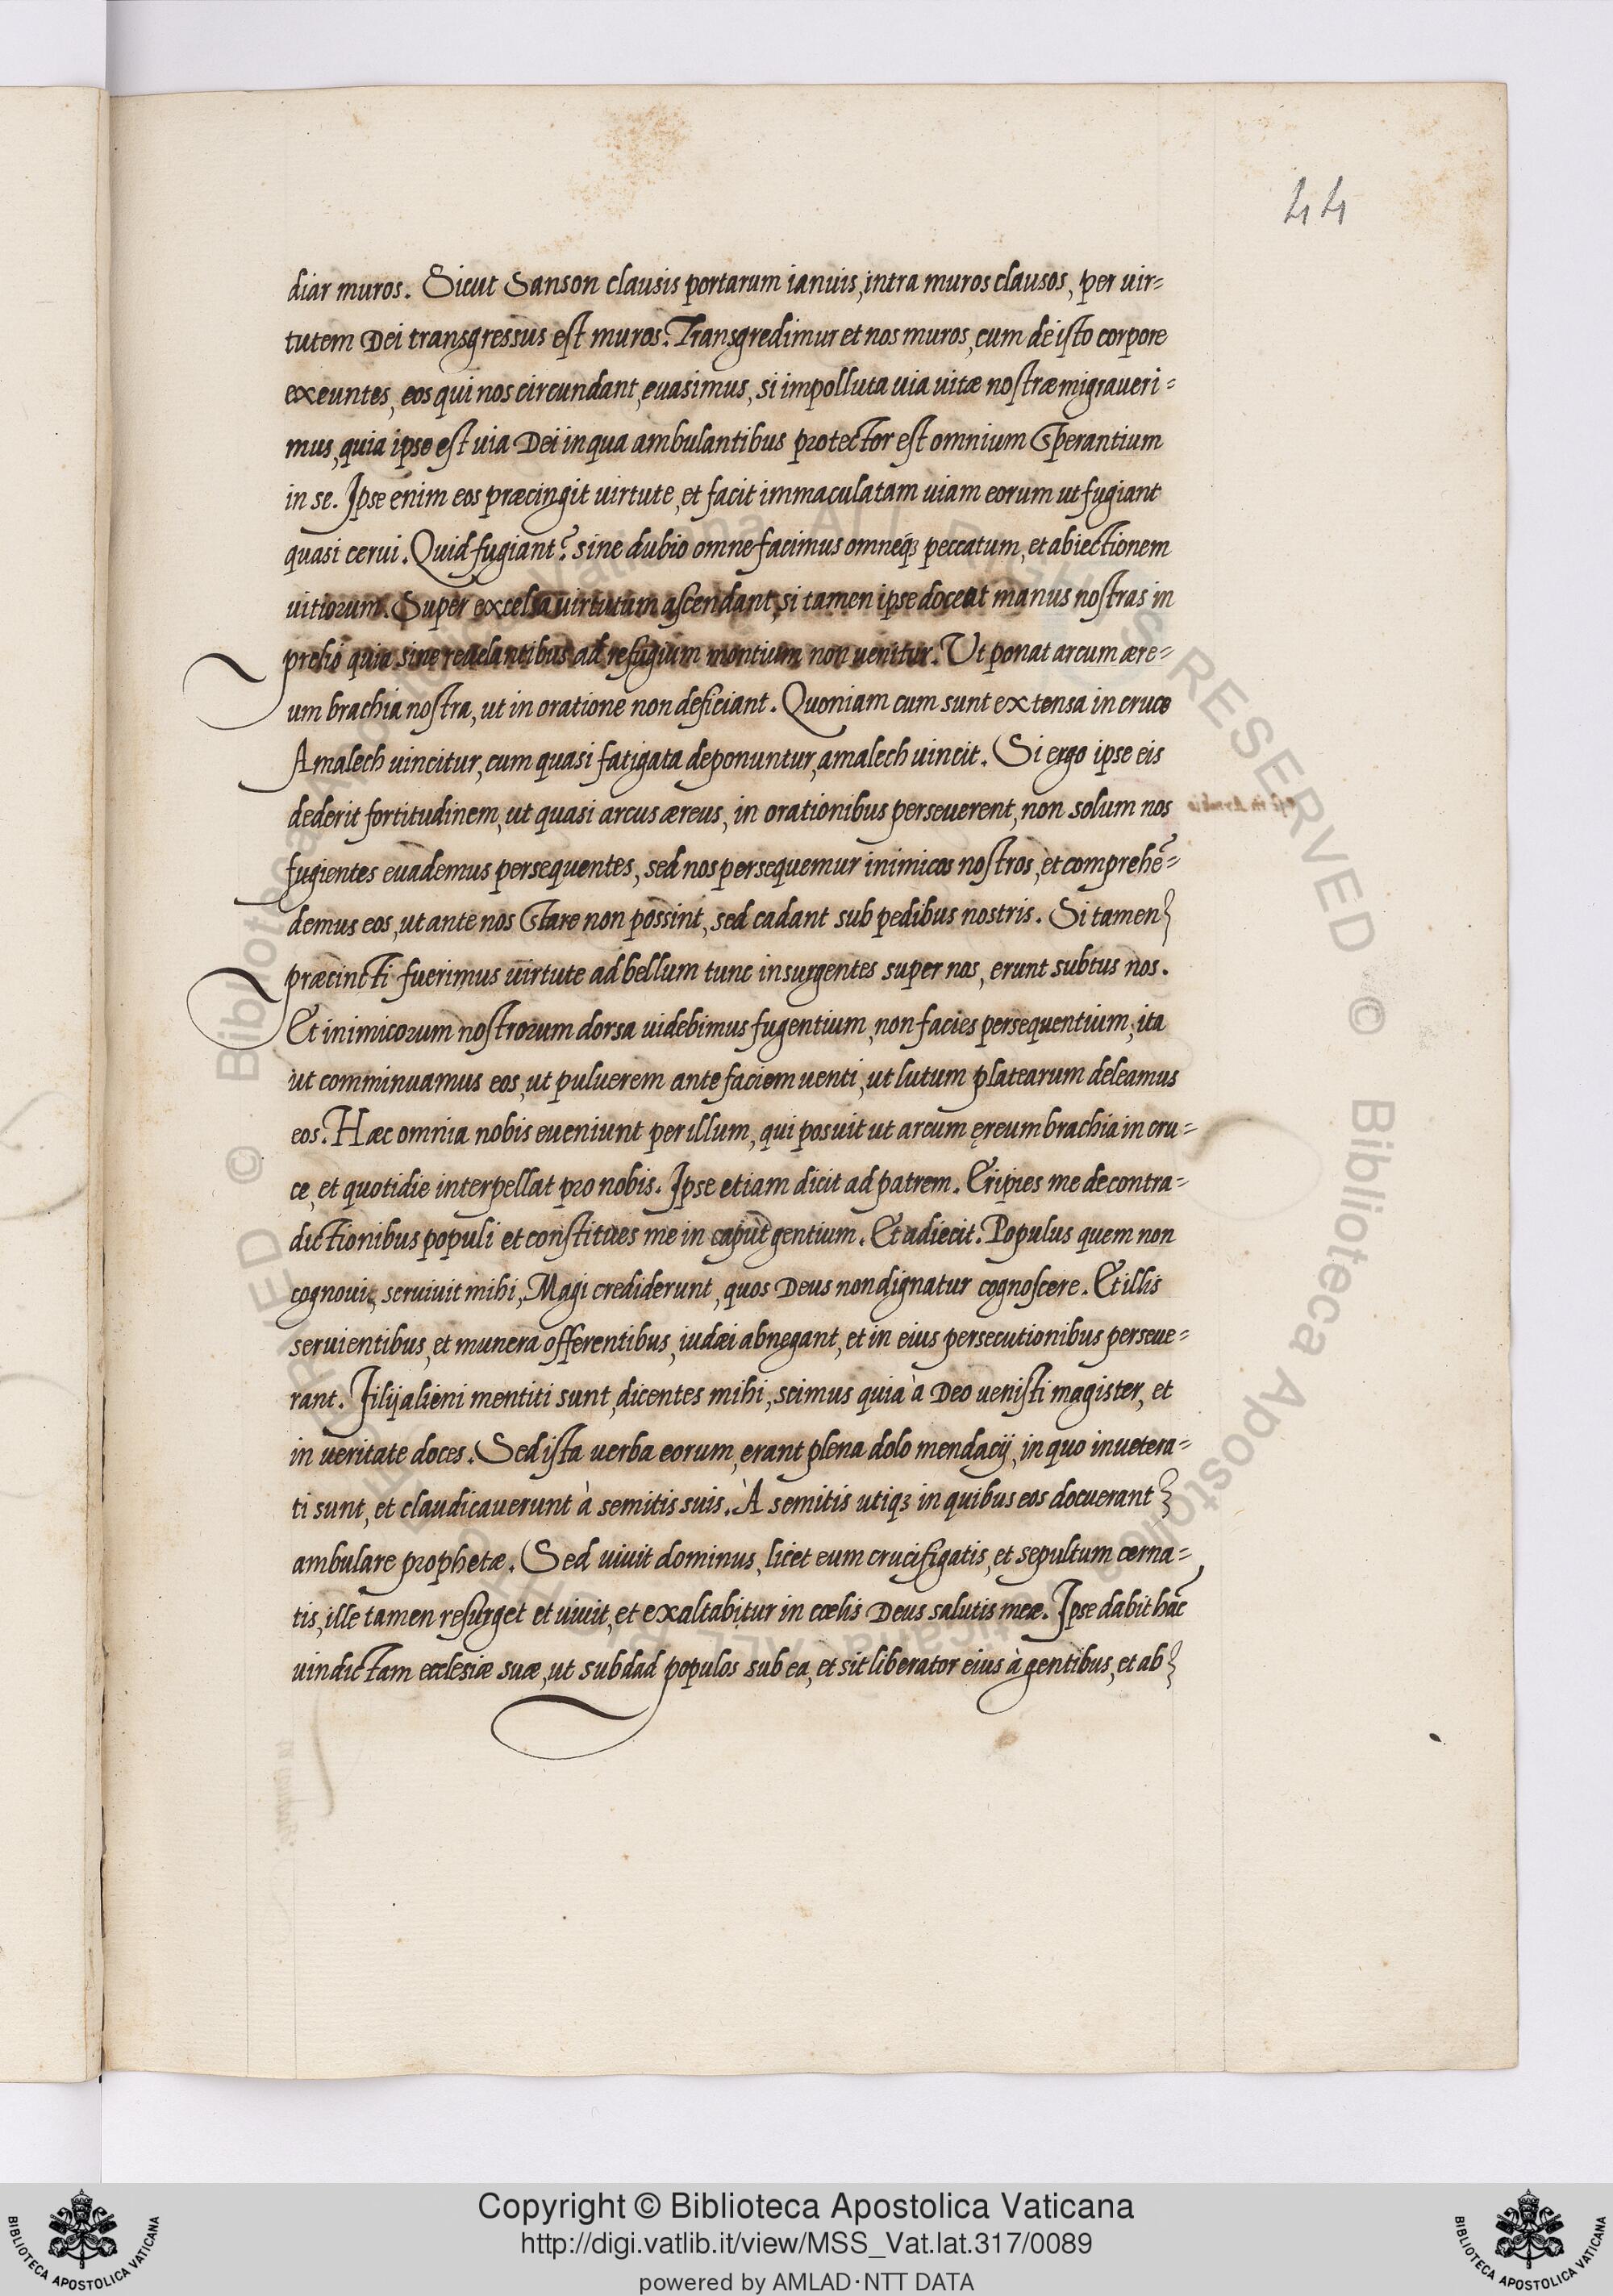 44
diar muros. Sicut Sanson clausis portarum ianuis, intra muros clausos, per uir=
tutem Dei transgressus est muros. Transgredimur et nos muros, cum de isto corpore
exeuntes, eos qui nos circundant, euasimus, si impolluta uia uitæ nostræ migraueri=
mus, quia ipse est uia Dei in qua ambulantibus protector est omnium sperantium
in se. Ipse enim eos præcingit uirtute, et facit immaculatam uiam eorum ut fugiant
quasi cerui. Quid fugiant? sine dubio omne facimus omneq́ꝫ peccatum, et abiectionem
uitiorum. Super excelsa uirtutum ascendant, si tamen ipse doceat manus nostras in
prelio quia sine reuelantibus ad refugium montium non uenitur. Ut ponat arcum ære=
um brachia nostra, ut in oratione non deficiant. Quoniam cum sunt extensa in cruce
Amalech uincitur, cum quasi fatigata deponuntur, amalech uincit. Si ergo ipse eis
dederit fortitudinem, ut quasi arcus æreus, in orationibus perseuerent, non solum nos
fugientes euademus persequentes, sed nos persequemur inimicos nostros, et comprehē=
demus eos, ut ante nos stare non possint, sed cadant sub pedibus nostris. Si tamen
præcincti fuerimus uirtute ad bellum tunc insurgentes super nos, erunt subtus nos.
Et inimicorum nostrorum dorsa uidebimus fugentium, non facies persequentium, ita
ut comminuamus eos, ut puluerem ante faciem uenti, ut lutum platearum deleamus
eos. Hæc omnia nobis eueniunt per illum, qui posuit ut arcum ęreum brachia in cru=
ce, et quotidie interpellat pro nobis. Ipse etiam dicit ad patrem. Eripies me de contra=
dictionibus populi et constitues me in caput gentium. Et adiecit. Populus quem non
cognoui, seruiuit mihi, Magi crediderunt, quos Deus non dignatur cognoscere. Et illis
seruientibus, et munera offerentibus, iudæi abnegant, et in eius persecutionibus perseue=
rant. Filij alieni mentiti sunt, dicentes mihi, scimus quia à Deo uenisti magister, et
in ueritate doces. Sed ista uerba eorum, erant plena dolo mendacij, in quo inuetera=
ti sunt, et claudicauerunt à semitis suis. À semitis utiqꝫ in quibus eos docuerant
ambulare prophetæ. Sed uiuit dominus, licet eum crucifigatis, et sepultum cerna=
tis, ille tamen resurget et uiuit, et exaltabitur in cœlis Deus salutis meæ. Ipse dabit hāc
uindictam ecclesiæ suæ, ut subdad populos sub ea, et sit liberator eius à gentibus, et ab
© Biblioteca Apostolica Vaticana ALL RIGHTS RESERVED
Copyright © Biblioteca Apostolica Vaticana
http://digi.vatlib.it/view/MSS_Vat.lat.317/0089
powered by AMLAD·NTT DATA
BIBLIOTECA APOSTOLICA VATICANA
BIBLIOTECA APOSTOLICA VATICANA